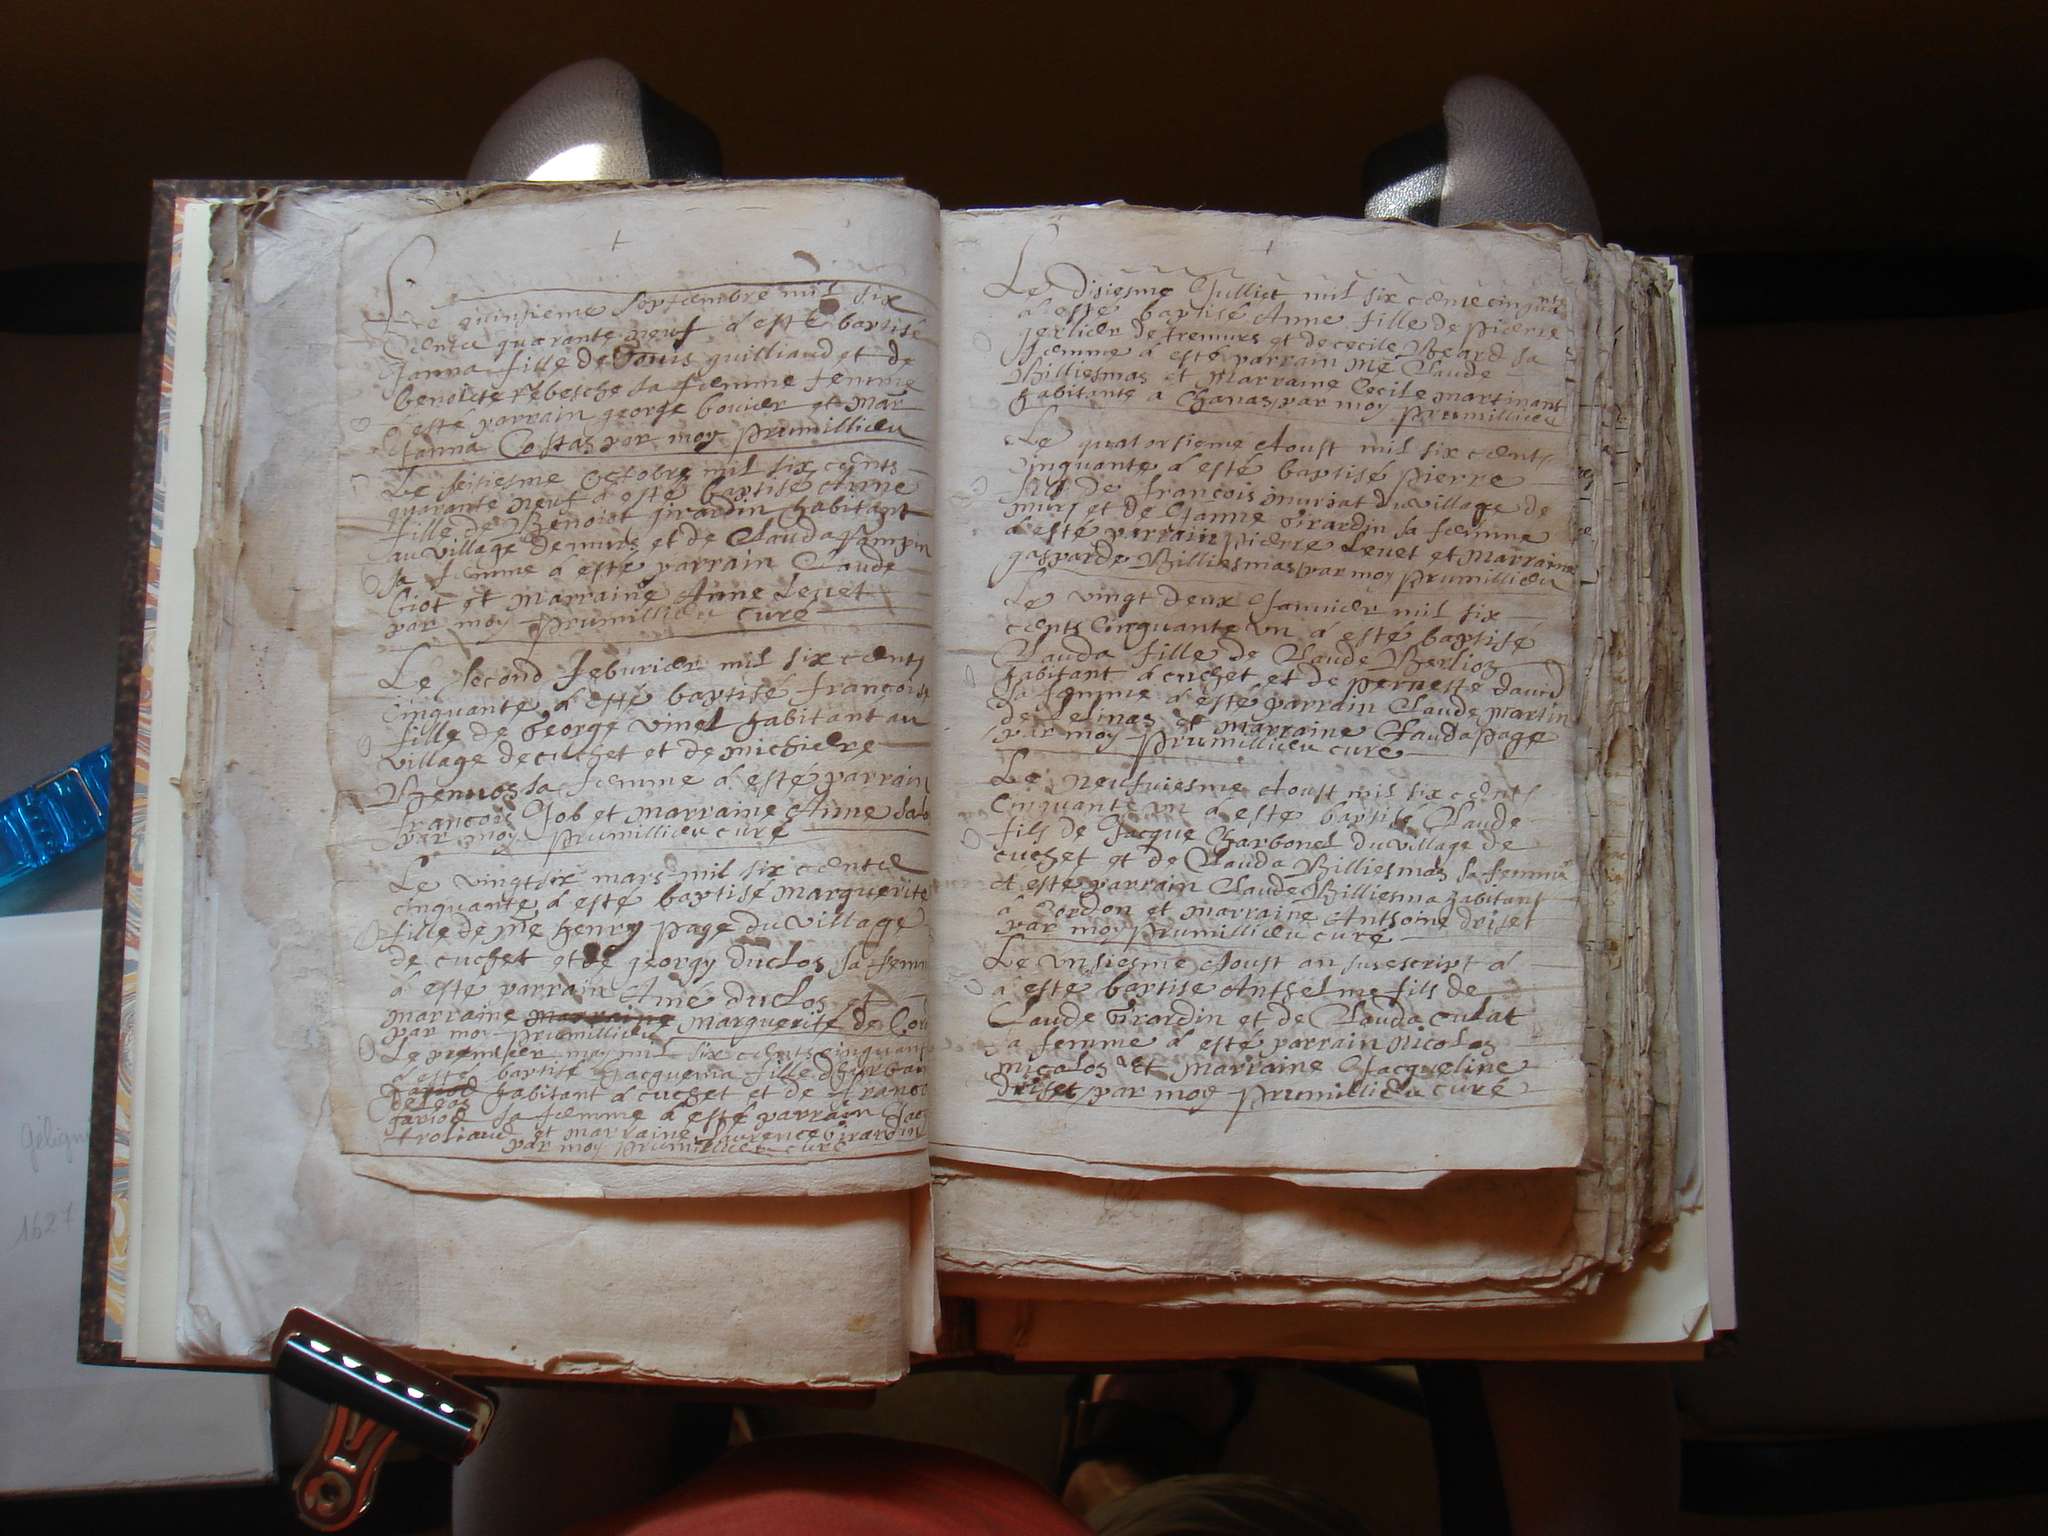 Le quinsieme septembre mil six
cents quarante neuf a esté baptisé
Janna fille de Louis guilliaud et de
benoite rebesche sa femme femme
a esté parrain george bouier et mar
Janna Costaz par moy prumillieu
Le seisiesme Octobre mil six cents
quarante neuf a esté baptisé Anne
fille de Benoiot girardin habitant
au village de murs et de Clauda
sa femme a esté parrain Claude
biot et marraine Anne Levet
par moy prumillieu curé
Le second feburier mil six cents
cinquante a esté baptisé françoise
fille de George vinel habitant au
village de cuchet et de michiere
sa femme a esté parrain
françois Job et marraine Anne
par moy prumillieu curé
Le vingt six mars mil six cents
cinquante a esté baptisé marguerite
fille de me henry page du village
de cuchet et de georgy duclos sa fem
a esté parrain Amé duclos et
marraine marraine marguerite de
par moy prumillieu
Le premier may mil six cents cinquant
a esté baptisé Jacquema fille
habitant a cuchet et de
sa femme a esté parrain
et marraine Laurence girardin
par moy prumillieu curé
Le disiesme Julliet mil six cent cinquante
a esté baptisé Anne fille de pierre
gerlier de tremurs et de cecile Beard sa
femme a esté parrain me Claude
Billiesmaz et marraine Cecile martinant
habitante a Chanaz par moy prumillieu
Le quatorsieme Aoust mil six cents
cinquante a esté baptisé pierre
fils de françois muriat du village de
murs et de Janne Girardin sa femme
a esté parrain pierre Levet et marraine
gasparde Billiesmaz par moy prumillieu
Le vingt deux Januier mil six
cents Cinquante un a esté baptisé
Clauda fille de Claude Berlioz
habitant a cuchet et de pernette david
sa femme a esté parrain Claude martin
de et marraine Clauda page
par moy prumillieu curé
Le neufuiesme Aoust mil six cents
Cinquante un a esté baptisé Claude
fils de Jacque Charbonel du village de
cuchet et de Clauda Billiesmaz sa femme
a esté parrain Claude Billiesma habitant
a Cordon et marraine Anthoine driset
par moy prumillieu curé
Le unsiesme Aoust an susescript a
a esté baptisé Anthelme fils de
Claude Girardin et de Clauda culat
sa femme a esté parrain nicolas
micalos et marraine Jacqueline
driset par moy prumillieu curé
1627